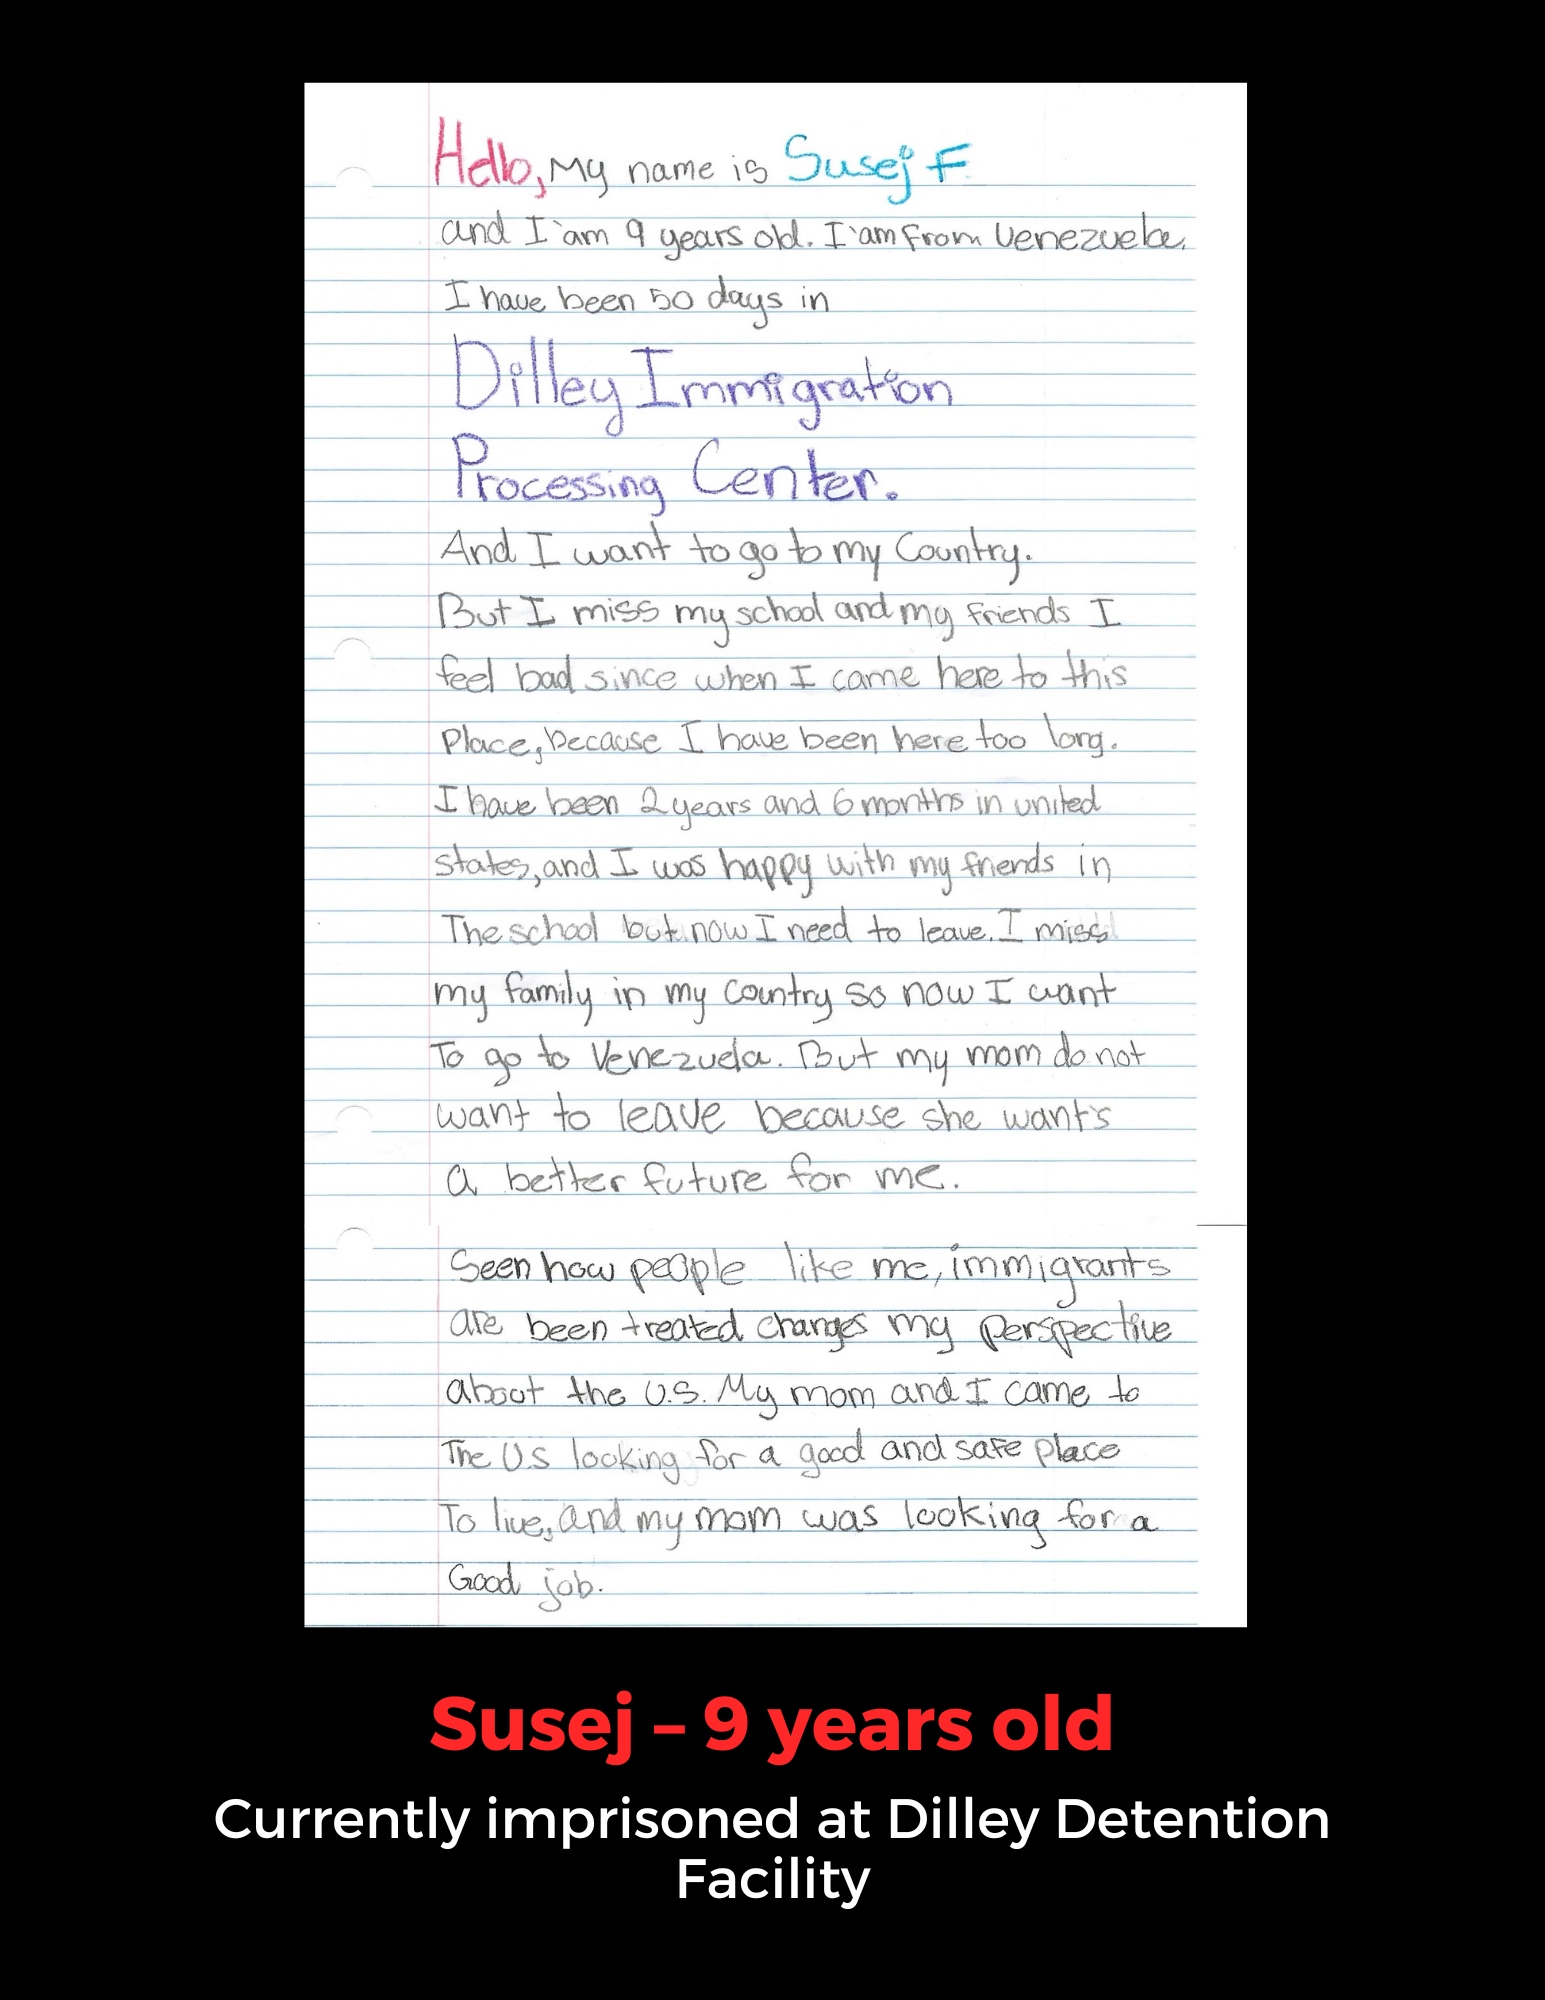 Hello, My name is Susej F
and I'am 9 years old. I'am from Venezuela.
I have been 50 days in
Dilley Immigration
Processing Center.
And I want to go to my Country.
But I miss my school and my friends I
feel bad since when I came here to this
Place, because I have been here too long.
I have been 2 years and 6 months in united
states, and I was happy with my friends in
The school but now I need to leave. I miss
my family in my country so now I want
To go to Venezuela. But my mom do not
want to leave because she want's
a better future for me.
Seen how people like me, immigrants
are been treated changes my perspective
about the U.S. My mom and I came to
The U.S looking for a good and safe place
To live, and my mom was looking for a
Good job.
Susej – 9 years old
Currently imprisoned at Dilley Detention
Facility